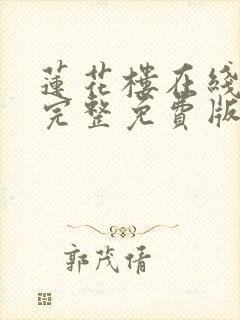 蓮花樓在綫
完整免費版
郭茂倩